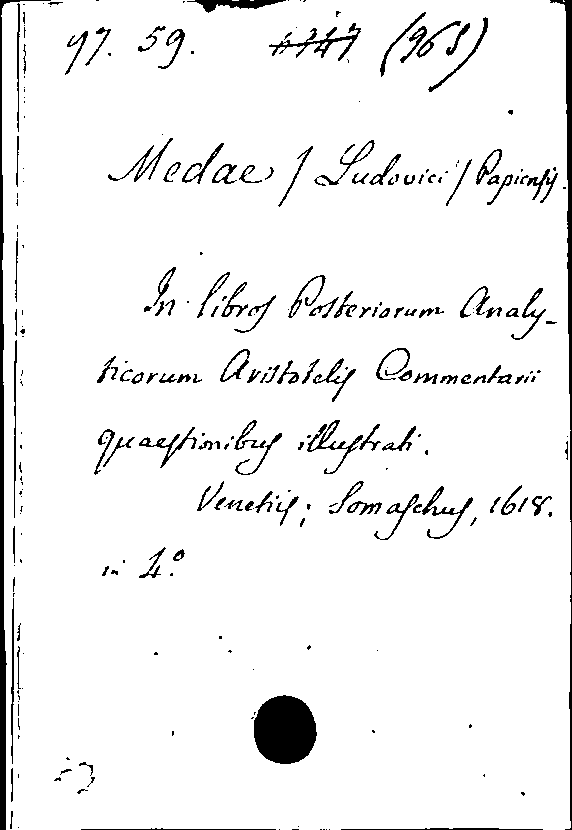 97. 59. 6747 (965)
Medae / Ludovici / Papiensis.
In libros Posteriorum Analy-
ticorum Aristotelis Commentarii
quaestionibus illustrati.
Venetiis; Somaschus, 1618.
in 4.º